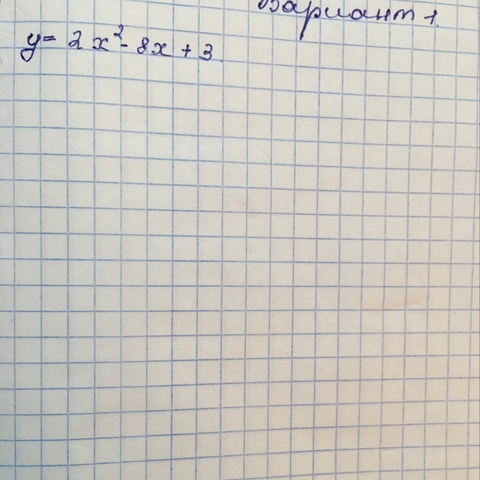 Вариант 1
y = 2x² - 8x + 3